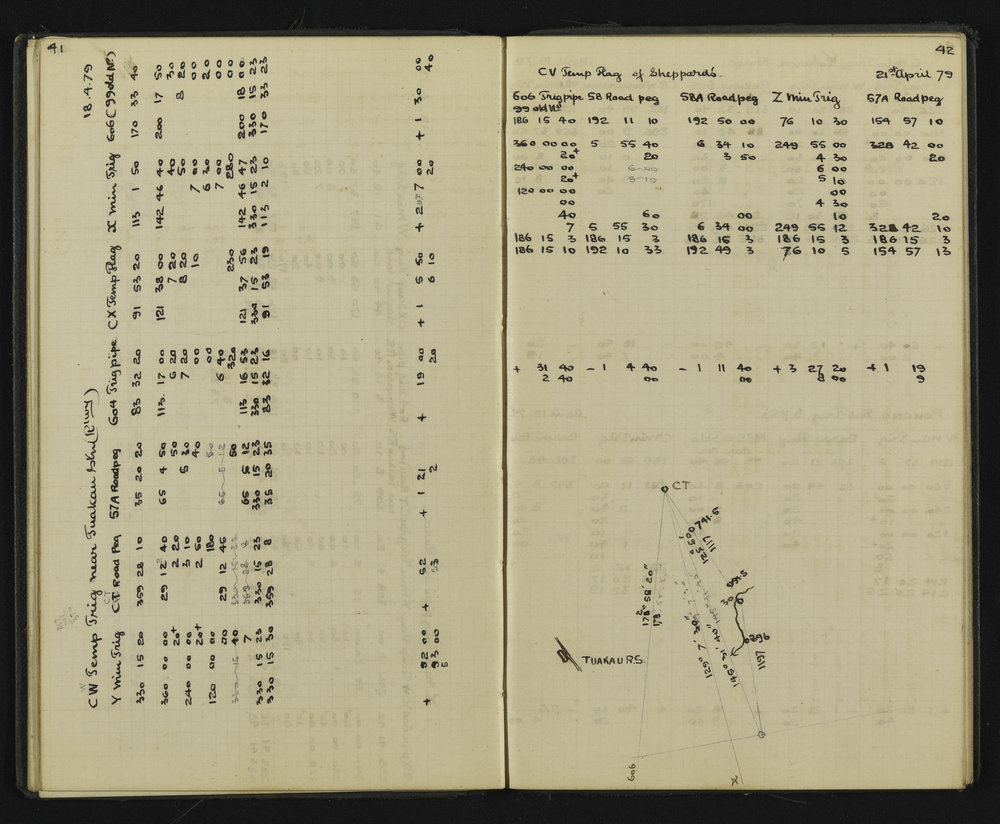 41
CW Temp Trig near Tuakau Stn (R'lway) 18.4.79
Y Min Trig CT Road Peg 57A Roadpeg 604 Trig pipe CX Temp Flag X Min Trig 606 (99 old No)
330 15 20 359 28 10 35 20 20 83 32 20 91 53 20 113 1 50 170 33 40
360 00 00 29 12 40 65 4 50 113 17 00 121 38 00 142 46 40 200 17 50
20+ 2 20 50 6 20 7 20 40 30
240 00 00 3 10 5 30 7 20 8 20 50 8 20
20+ 2 50 40 00 10 7 00 00
120 00 00 180 50 00 6 30 20
00 29 12 45 65 5 12 6 40 7 00 00
40 50 320 230 280 00
7 65 5 12 113 16 53 121 37 56 142 46 47 200 18 00
330 15 23 330 15 23 330 15 23 330 15 23 330 15 23 330 15 23 330 15 23
330 15 30 359 28 8 35 20 35 83 32 16 91 53 19 113 2 10 170 33 23
+ 92 00 + 52 + 1 21 + 19 00 + 1 5 50 + 2 7 00 + 1 30 00
93 00 53 2 20 6 10 20 40
5
42
CV Temp Flag of Sheppard's 21st April 79
606 Trig pipe 58 Road peg 58A Roadpeg Z Min Trig 57A Roadpeg
99 old No
186 15 40 192 11 10 192 50 00 76 10 30 154 57 10
360 00 00 5 55 40 6 34 10 249 55 00 328 42 00
20+ 20 3 50 4 30 20
240 00 00 6 00
20+ 5 10
120 00 00 00
00 4 30
40 60 00 10 20
7 5 55 30 6 34 00 249 55 12 328 42 10
186 15 3 186 15 3 186 15 3 186 15 3 186 15 3
186 15 10 192 10 33 192 49 3 76 10 5 154 57 13
+ 31 40 - 1 4 40 - 1 11 40 + 3 27 20 + 1 19
2 40 00 00 8 00 9
CT
741.5
1117
125° 50'
178° 58' 20"
173
129° 7' 30"
145° 31' 40"
896
1197
TUAKAU R.S.
606
X